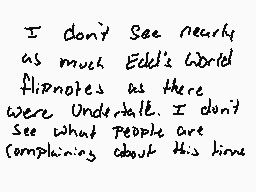 I don't see nearly
as much Edd's World
flipnotes as there
were Undertale. I don't
see what people are
complaining about this time